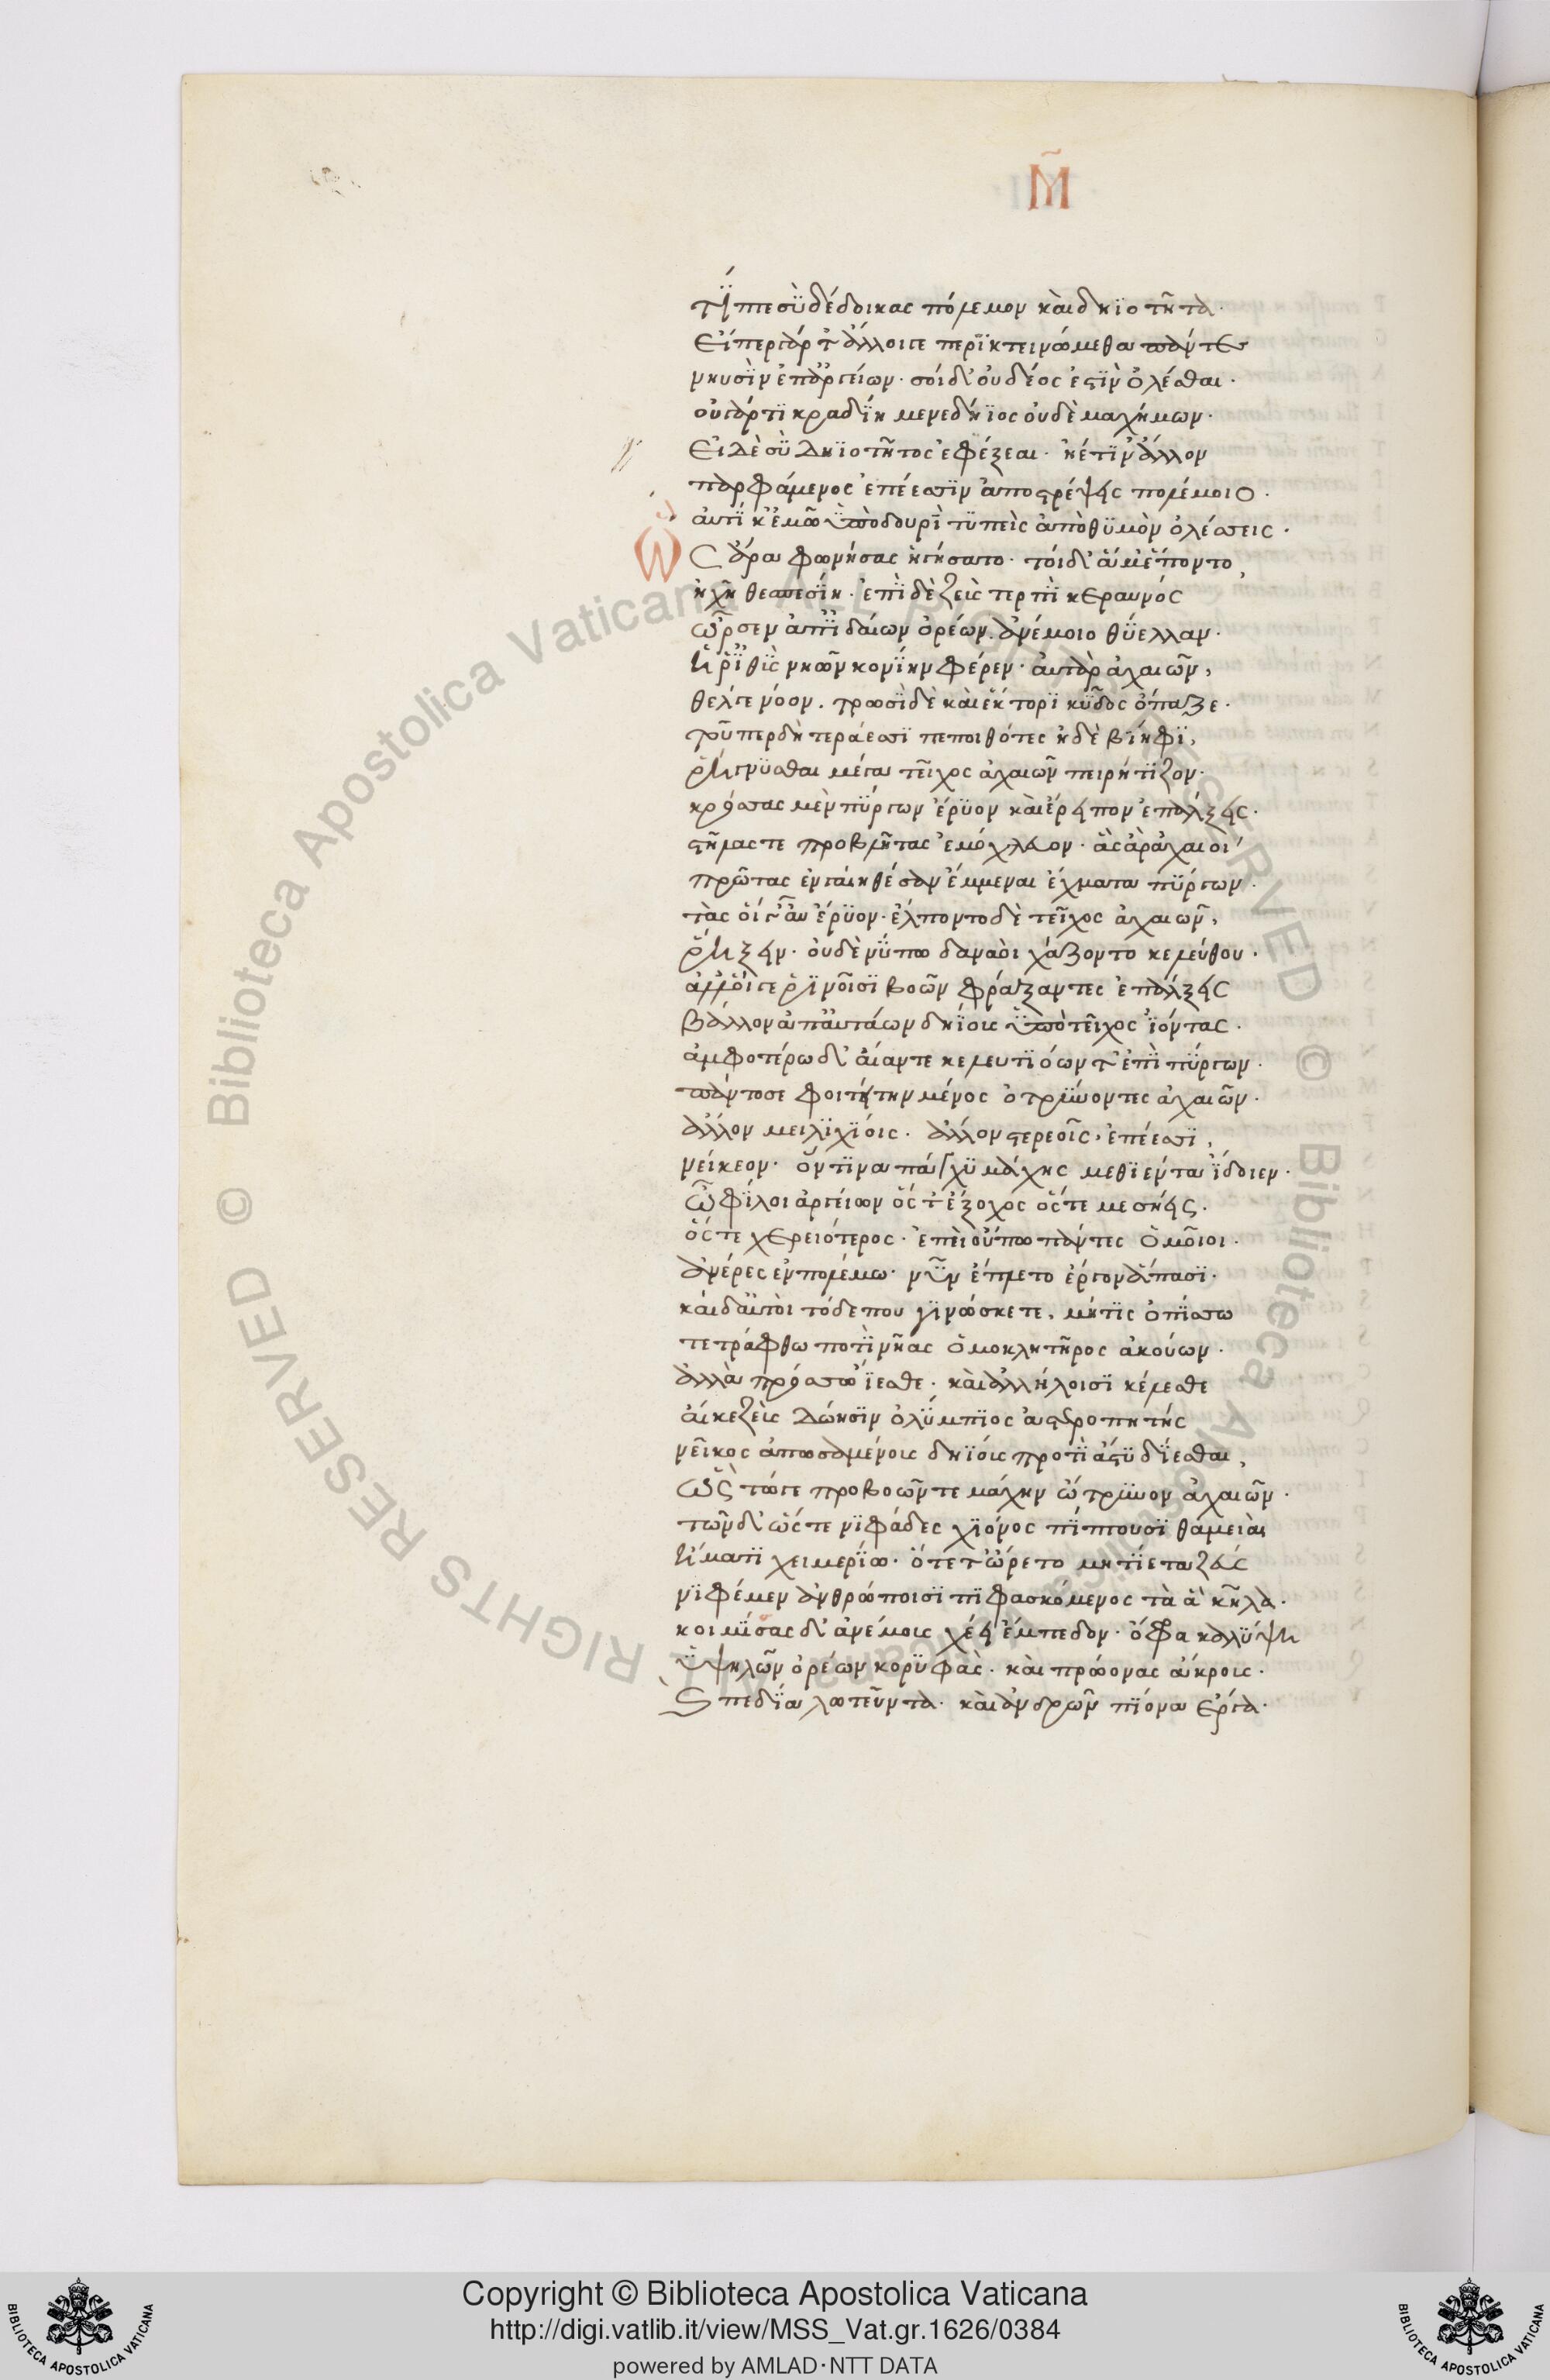 Μ̃
τίπτε σὺ δέδοικας πόλεμον καὶ δηϊοτῆτα·
Εἴπερ γάρ τ' ἄλλοι γε περικτεινώμεθα πάντες
νηυσὶν ἐπ' ἀργείων· σοὶ δ' οὐ δέος ἐστὶν ὀλέσθαι·
οὐ γάρ τι κραδίη μενεδήϊος οὐδὲ μαχήμων·
Εἰ δὲ σὺ δηϊοτῆτος ἐφέξεαι· ἠέ τιν' ἄλλον
παρφάμενος ἐπέεσσιν ἀποστρέψεις πολέμοιο·
αὐτίκ' ἐμῶ ὑπὸ δουρὶ τυπεὶς ἀπὸ θυμὸν ὀλέσσεις·
Ὣς ἄρα φωνήσας ἡγήσατο· τοὶ δ' ἅμ' ἕποντο,
ἠχῆ θεσπεσίη· ἐπὶ δὲ ζεὺς τερπικέραυνος
ὦρσεν ἀπ' ἰδαίων ὀρέων ἀνέμοιο θύελλαν·
ἥ ῥ' ἰθὺς νηῶν κονίην φέρεν· αὐτὰρ ἀχαιῶν,
θέλγε νόον. τρωσὶ δὲ καὶ ἕκτορι κῦδος ὄπαζε·
τοῦ περ δὴ τεράεσσι πεποιθότες ἠδὲ βίηφι,
ῥήγνυσθαι μέγα τεῖχος ἀχαιῶν πειρήτιζον·
κρόσσας μὲν πύργων ἔρυον καὶ ἔρειπον ἐπάλξεις·
στήλας τε προβλῆτας ἐμόχλεον· ἃς ἄρ' ἀχαιοὶ
πρώτας ἐν γαίη θέσαν ἔμμεναι ἔχματα πύργων·
τὰς οἵ γ' αὖ ἔρυον· ἔλποντο δὲ τεῖχος ἀχαιῶν,
ῥήξειν· οὐδὲ νύ πω δαναοὶ χάζοντο κελεύθου·
ἀλλ' οἵ γε ῥινοῖσι βοῶν φράξαντες ἐπάλξεις
βάλλον ἀπ' αὐτάων δηΐους ὑπὸ τεῖχος ἰόντας·
ἀμφοτέρω δ' αἴαντε κελευτιόων τ' ἐπὶ πύργων·
πάντοσε φοιτήτην μένος ὀτρύνοντες ἀχαιῶν·
ἄλλον μειλιχίοις· ἄλλον στερεοῖς ἐπέεσσι,
νείκεον· ὅν τινα πάγχυ μάχης μεθιέντα ἴδοιεν·
ὦ φίλοι ἀργείων ὅς τ' ἔξοχος ὅς τε μεσήεις·
ὅς τε χερειότερος· ἐπεὶ οὔπω πάντες ὁμοῖοι·
ἀνέρες ἐν πολέμω· νῦν ἔπλετο ἔργον ἅπασι·
καὶ δ' αὐτοὶ τόδε που γινώσκετε, μή τις ὀπίσσω
τετράφθω ποτὶ νῆας ὁμοκλητῆρος ἀκούων·
ἀλλὰ πρόσσω ἵεσθε· καὶ ἀλλήλοισι κέλεσθε
αἴ κε ζεὺς δώησιν ὀλύμπιος ἀστεροπητὴς
νεῖκος ἀπωσαμένους δηΐους προτὶ ἄστυ δίεσθαι,
Ὣς τώ γε προβοῶντε μάχην ὤτρυνον ἀχαιῶν·
τῶν δ' ὥς τε νιφάδες χιόνος πίπτουσι θαμειαὶ
ἤματι χειμερίω· ὅτε τ' ὤρετο μητίετα ζεὺς
νιφέμεν ἀνθρώποισι πιφασκόμενος τὰ ἃ κῆλα·
κοιμίσας δ' ἀνέμους χέει ἔμπεδον· ὄφρα καλύψη
ὑψηλῶν ὀρέων κορυφὰς· καὶ πρώονας ἄκρους·
Καὶ πεδία λωτεῦντα· καὶ ἀνδρῶν πίονα ἔργα·
Copyright © Biblioteca Apostolica Vaticana
http://digi.vatlib.it/view/MSS_Vat.gr.1626/0384
powered by AMLAD·NTT DATA